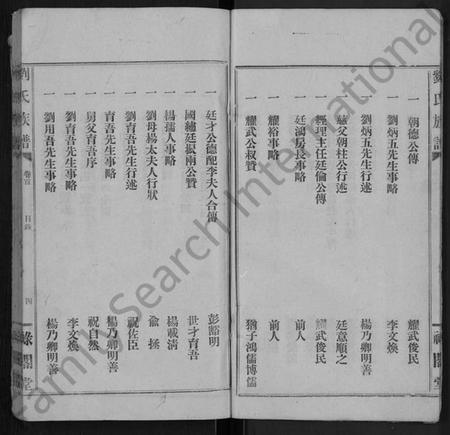 劉氏族譜
一 朝德公傳 耀武俊民
一 劉炳五先生事略 李文煥
一 劉炳五先生行述 楊乃卿明善
一 慈父朝柱公行述 廷意順之
一 經理主任廷倫公傳 耀武俊民
一 廷鴻房長事略 前人
一 耀裕事略 前人
一 耀武公叔贊 猶子鴻儒博儒
祿閣堂
劉氏族譜 卷首 目錄 四 祿閣堂
一 廷才公德配李夫人合傳 彭豁明
一 國繡廷振兩公贊 世才育吾
一 楊孺人事略 楊載清
一 劉母楊太夫人行狀 俞拯
一 劉育吾先生行述 祝佐臣
一 育吾先生事略 楊乃卿明善
一 舅父育吾序 祝自然
一 劉育吾先生事略 李文煥
一 劉用吾先生事略 楊乃卿明善
FamilySearch International